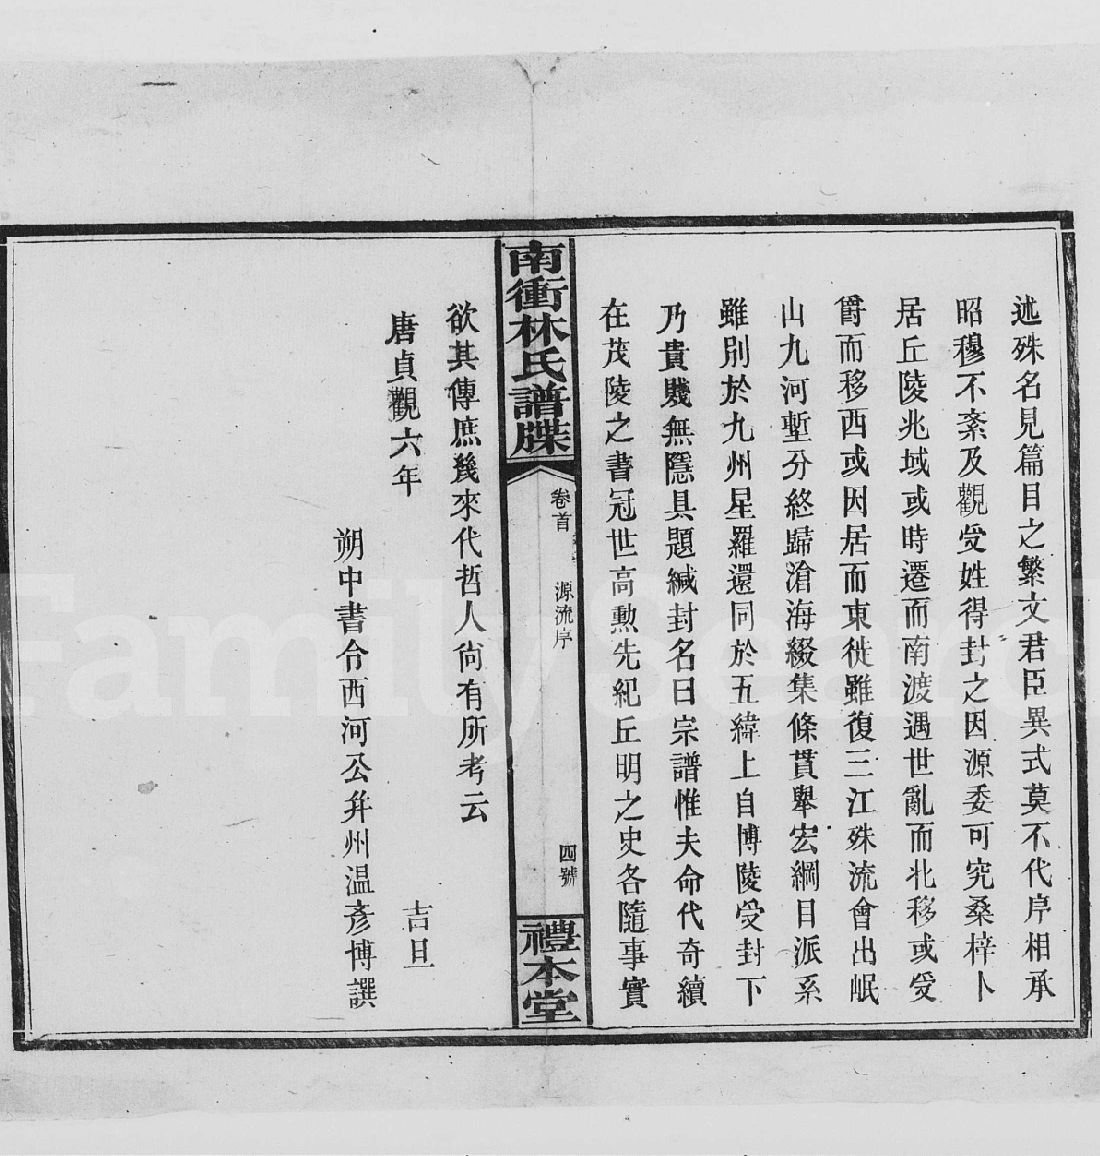 述殊名見篇目之繁文君臣異式莫不代序相承
昭穆不紊及觀受姓得封之因源委可究桑梓卜
居丘陵兆域或時遷而南渡遇世亂而北移或受
爵而移西或因居而東徙雖復三江殊流會出岷
山九河塹分終歸滄海綴集條貫舉宏綱目派系
雖別於九州星羅還同於五緯上自博陵受封下
乃貴賤無隱具題緘封名曰宗譜惟夫命代奇績
在茂陵之書冠世高勲先紀丘明之史各隨事實
南衝林氏譜牒
卷首
源流序
四號
禮本堂
欲其傳庶幾來代哲人尙有所考云
唐貞觀六年
吉旦
朔中書令西河公幷州温彥博譔
FamilySearch